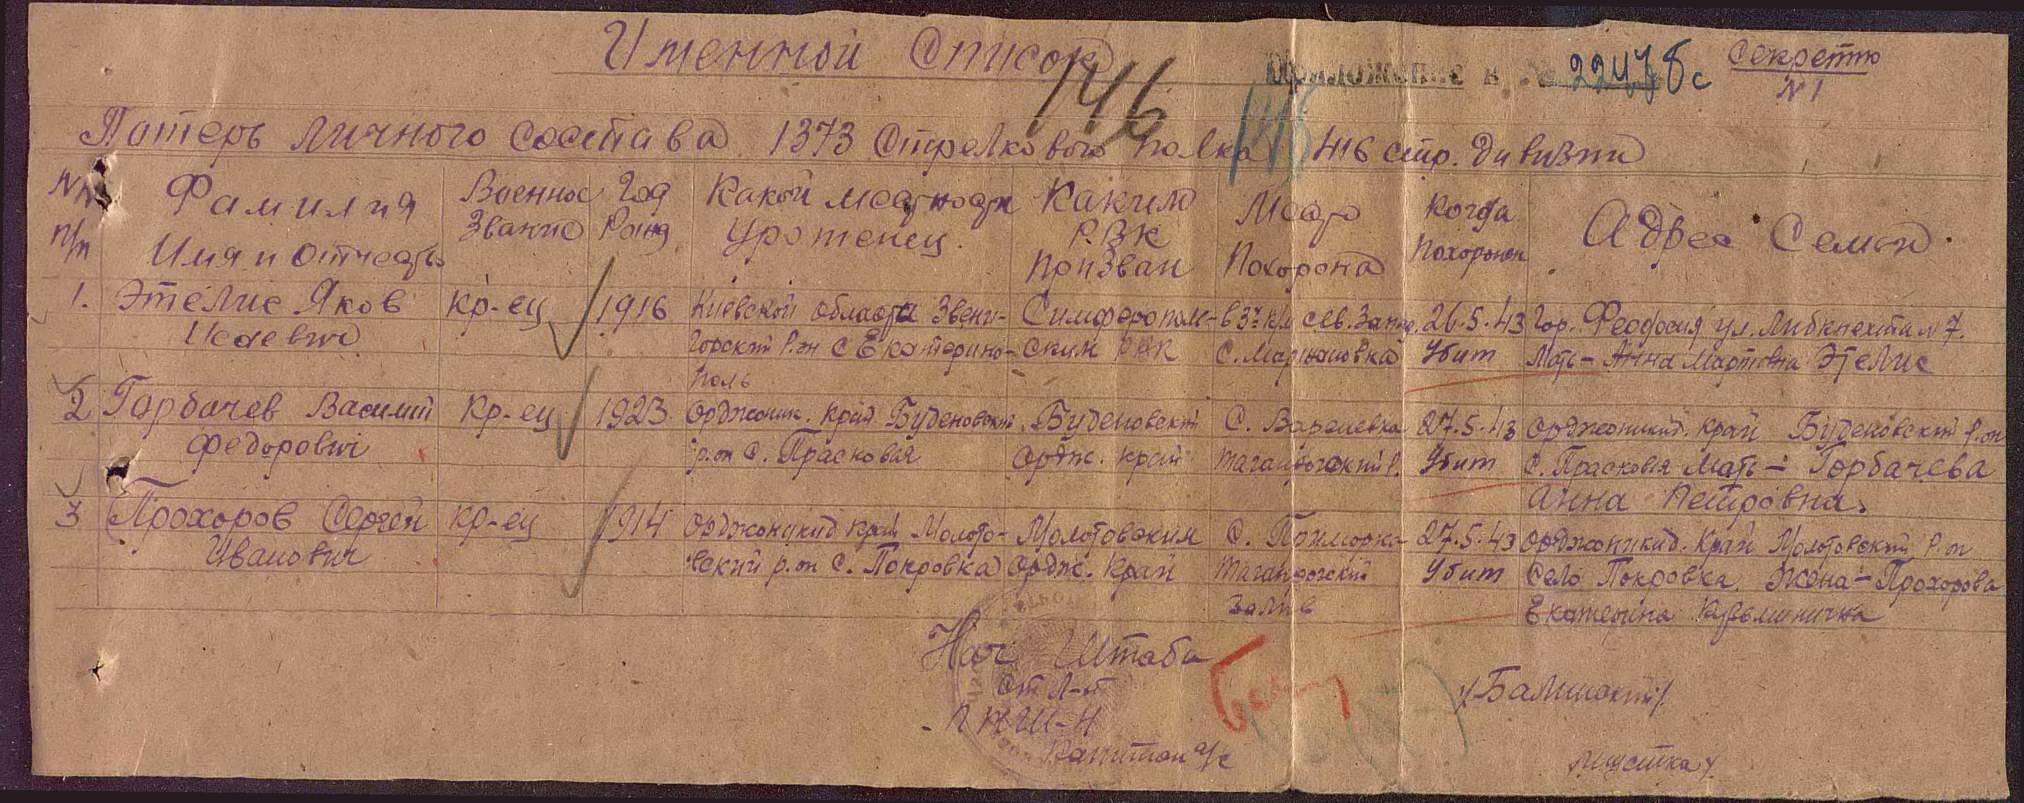 Именной Список
Приложение к 22478с
Секретно
N 1
146
Потерь личного состава 1373 Стрелкового полка 416 стр. дивизии
NN п/п
Фамилия Имя и Отчество
Военное Звание
Год Рожд
Какой местности Уроженец
Каким Р.В.К Призван
Место Похорона
Когда Похоронен
Адрес Семьи
1. Этелис Яков кр-ец 1916 Киевской области Звени- Симферополь- в 3х км сев. Запад. 26.5.43 Гор. Феодосия ул. Либкнехта N 7.
Исаевич горский р.он С Екатерино- ским РВК С. Мариновка Убит Мать - Анна Мартовна Этелис
поль
2 Горбачев Василий Кр-ец 1923 Орджоник. край Буденовский Буденовский С. Варелевка 27.5.43 Орджоникид. край Буденовский р.он
Федорович р.он С. Прасковея Ордж. край Таганрогский р. Убит С. Прасковея Мать - Горбачева
Анна Петровна.
3 Прохоров Сергей кр-ец 1914 Орджоникид край Молото- Молотовским С. Приморка 27.5.43 Орджоникид. Край Молотовский р.он
Иванович вский р.он С. Покровка Ордж. край Таганрогский Убит Село Покровка Жена - Прохорова
Залив Екатерина Кузьминична
Нач Штаба
Ст Л-т /Балинский/
ПНШ-4
Капитан а/с